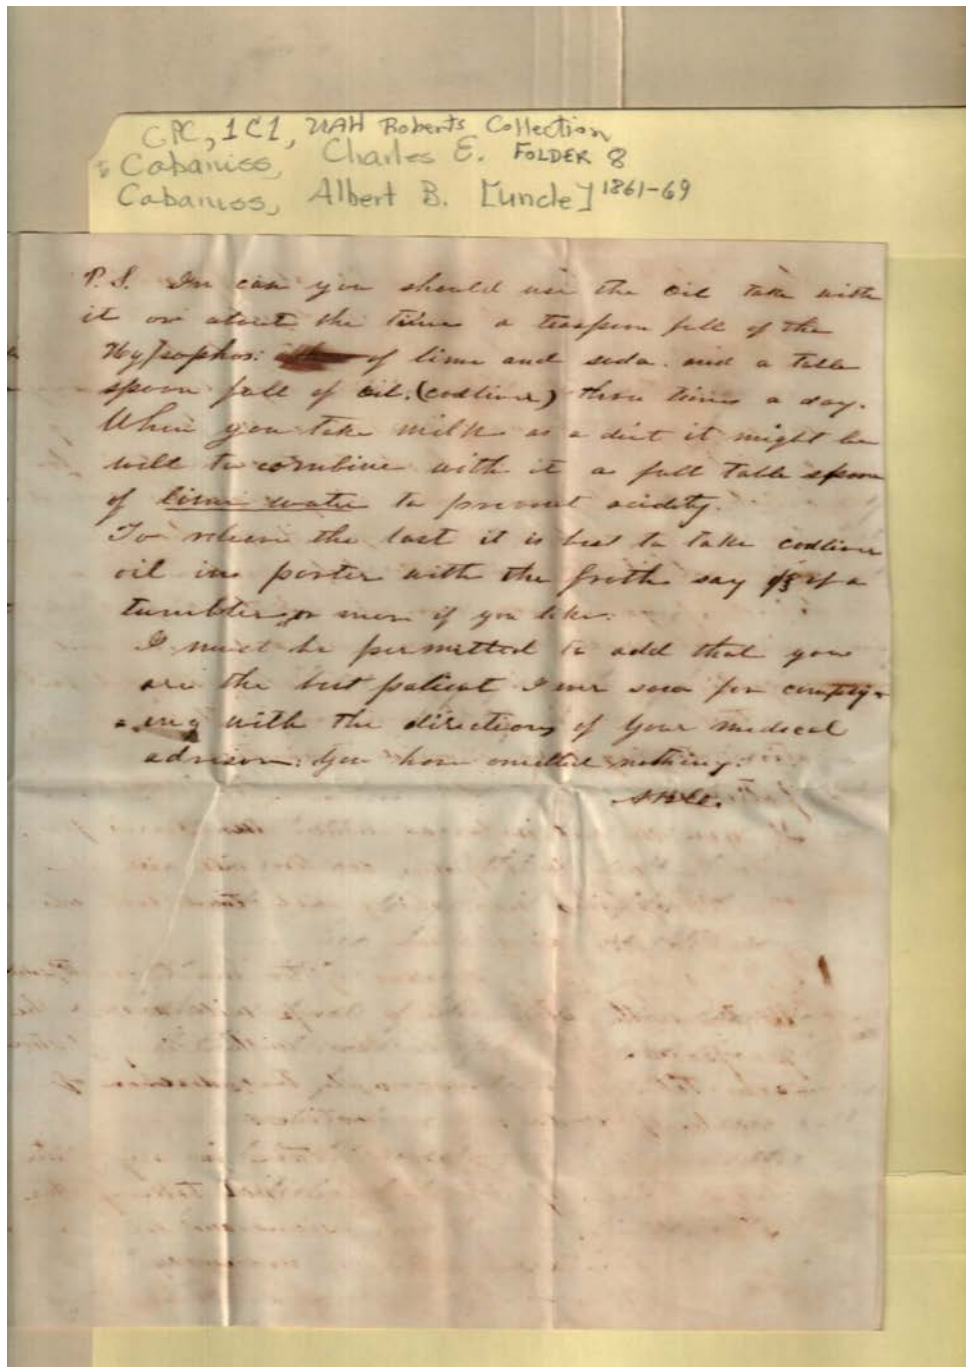 CPC, 1C1, UAH Roberts Collection
Cabaniss, Charles E. FOLDER 8
Cabaniss, Albert B. [uncle] 1861-69
P. S. In case you should use the oil take with
it or about the time a teaspoon full of the
Hypophos: of lime and soda. and a table
spoon full of oil. (codliver) three times a day.
When you take milk as a diet it might be
well to combine with it a full table spoon
of lime water to prevent acidity.
To relieve the tast it is best to take codliver
oil in porter with the froth say 1/3 of a
tumbler or more if you like.
I must be permitted to add that you
are the best patient I ever saw for comply-
ing with the directions of your medical
advisor: You have omitted nothing.